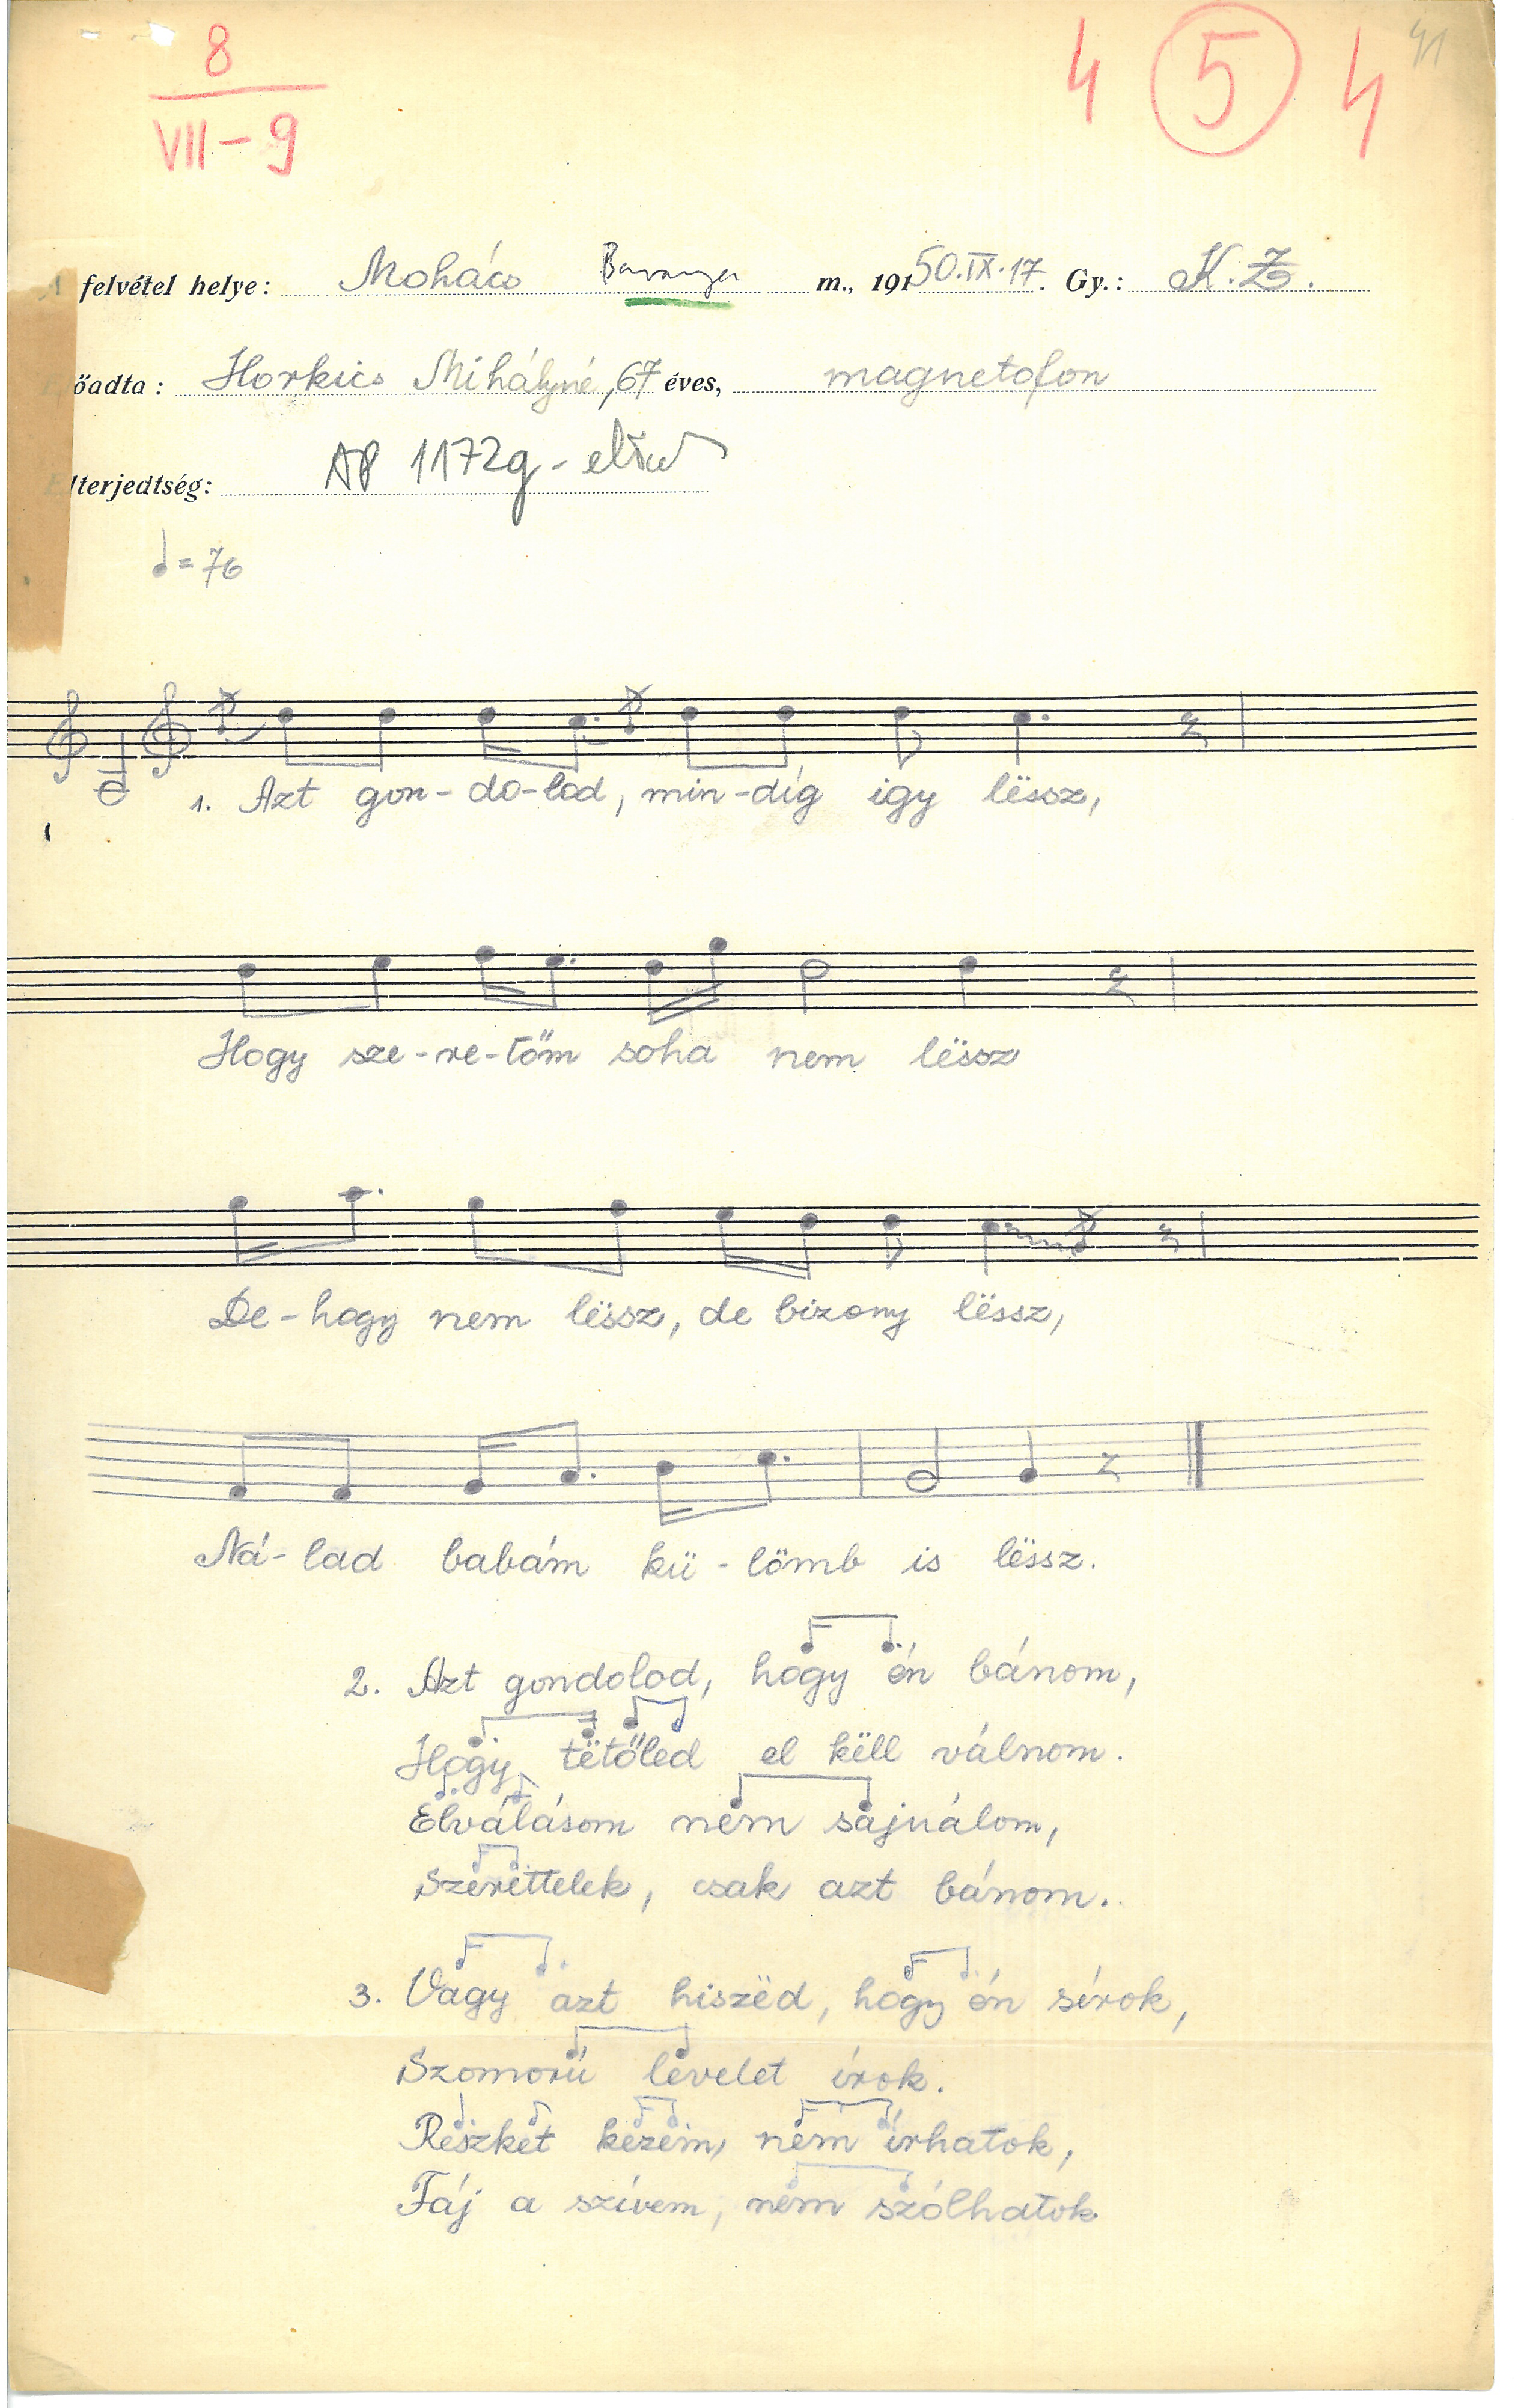 8
VII-9
4 5 4
41
A felvétel helye: Mohács Baranya m., 19150.IX.17. Gy.: K.Z.
Előadta: Horkics Mihályné, 67 éves, magnetofon
Elterjedtség: AP 1172g -
= 76
1. Azt gon-do-lod, min-dig igy lëssz,
Hogy sze-re-tőm soha nem lëssz
De-hogy nem lëssz, de bizony lëssz,
Ná-lad babám kü-lömb is lëssz.
2. Azt gondolod, hogy én bánom,
Hogy tëtőled el këll válnom.
Elválásom nem sajnálom,
Szerettelek, csak azt bánom.
3. Vagy azt hiszëd, hogy én sírok,
Szomorú levelet írok.
Reszket kezem, nem írhatok,
Fáj a szívem, nem szólhatok